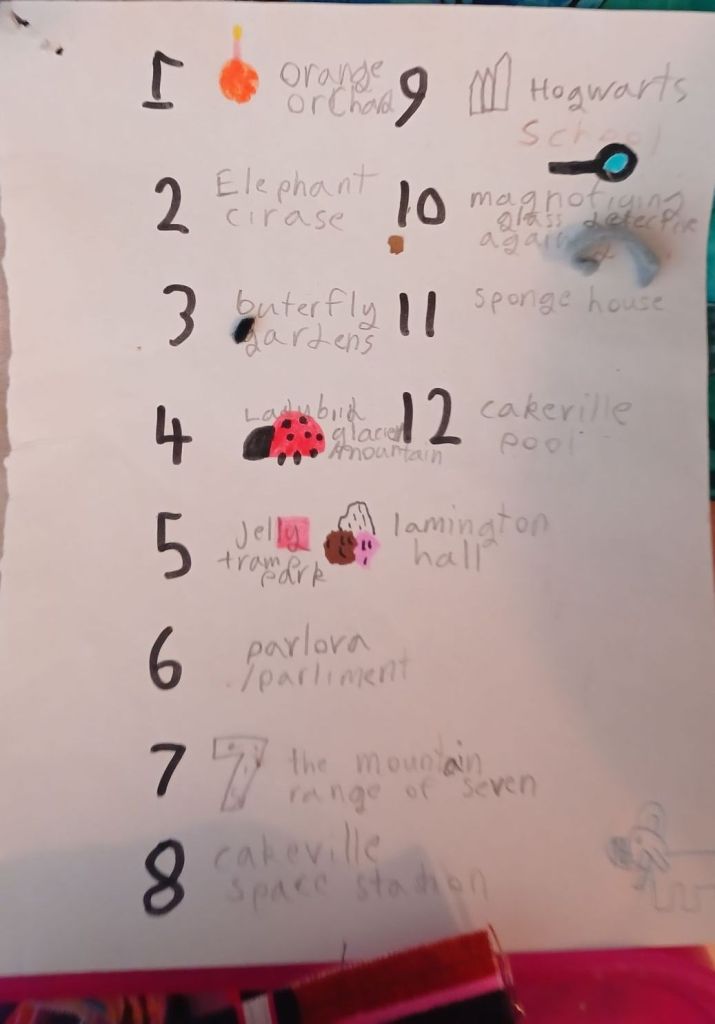 1 orange
orchad
2 Elephant
cirase
3 buterfly
gardens
4 Ladybird
glacier
mountain
5 jelly
tramp
park
lamington
hall
6 parlova
/parliment
7 7 the mountain
range of seven
8 cakeville
space station
9 Hogwarts
School
10 magnofiying
glass detective
11 sponge house
12 cakeville
pool